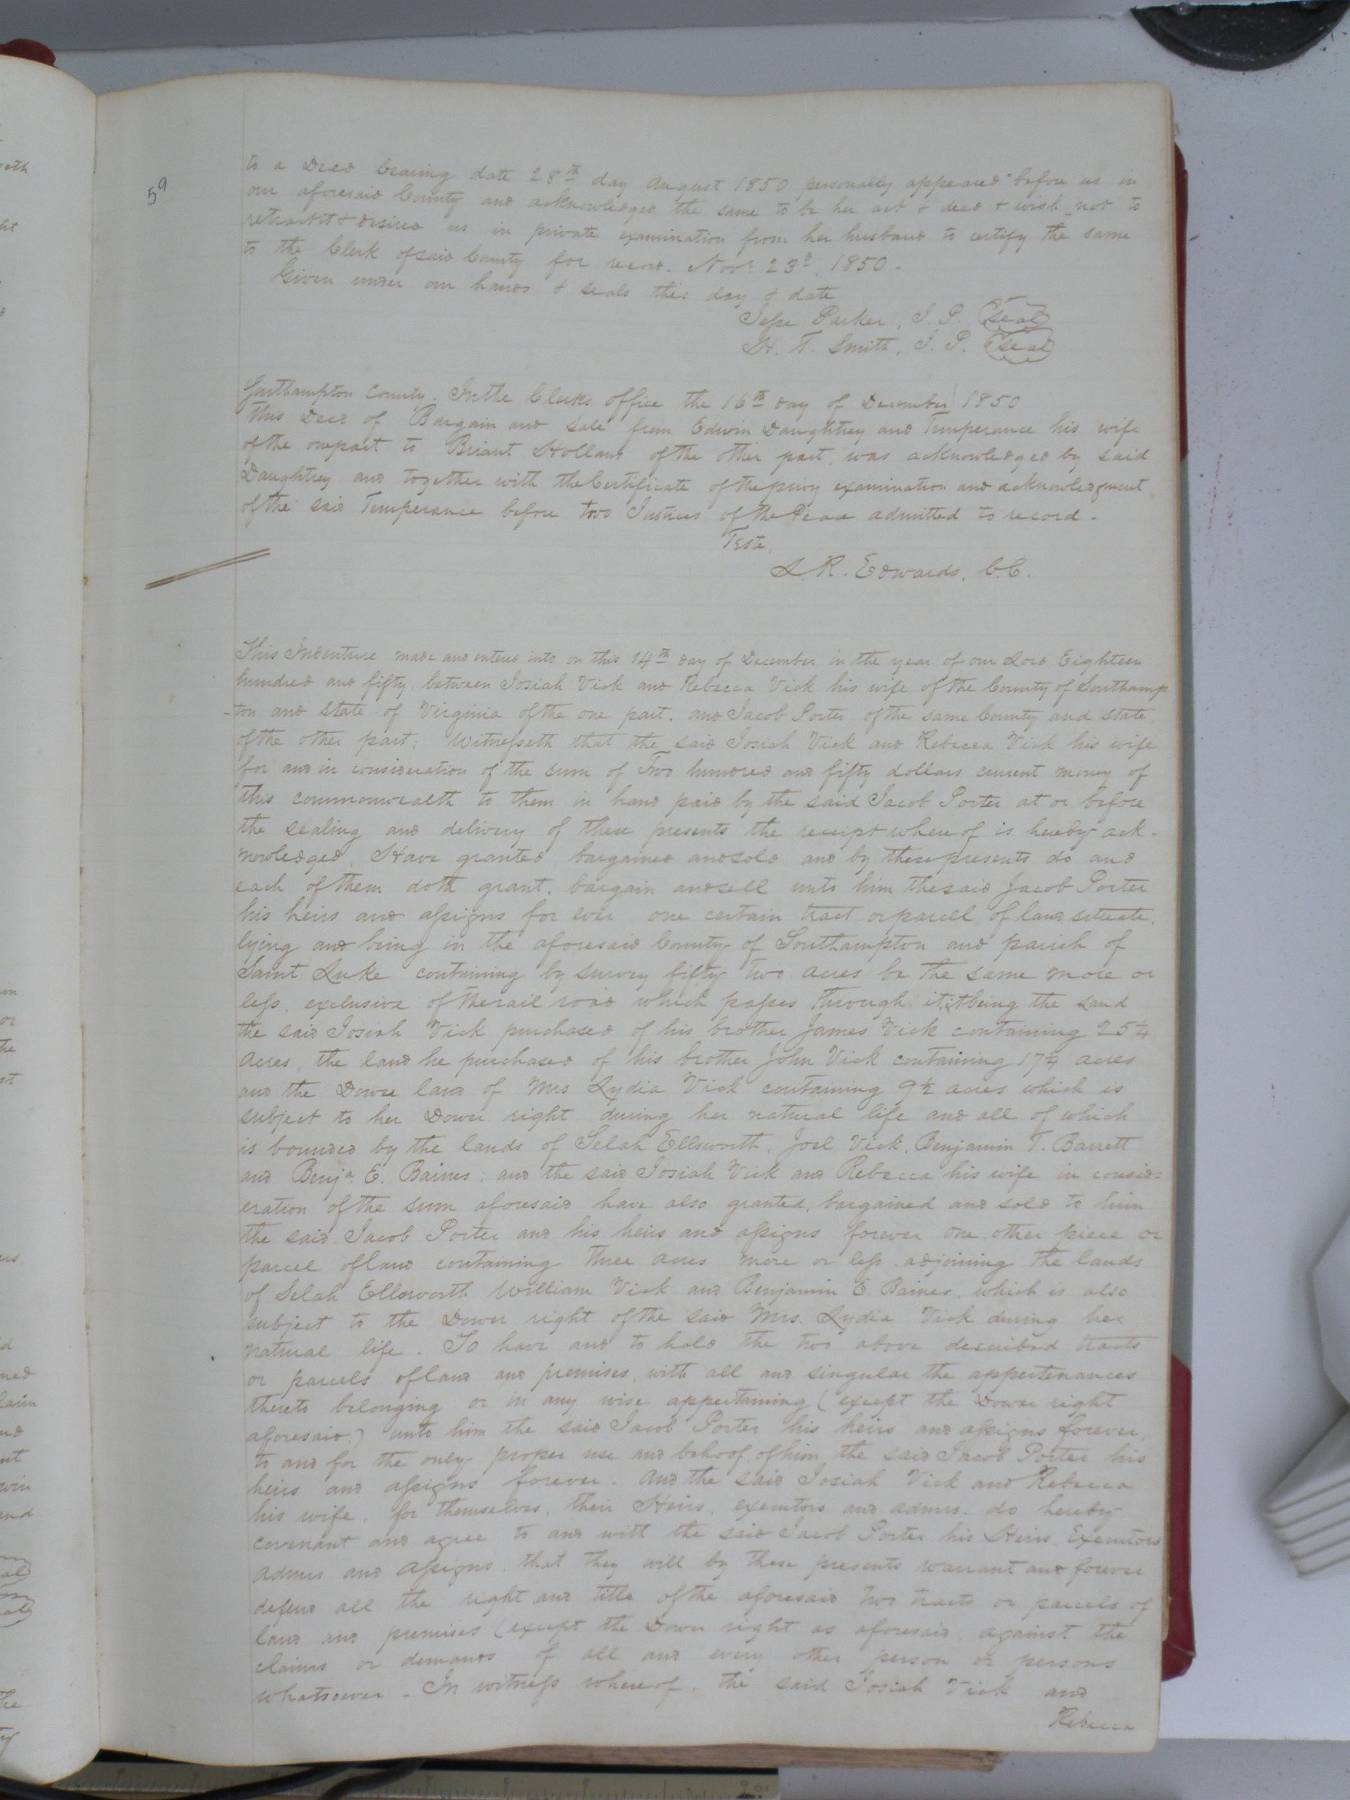 59
to a Deed bearing date 28th day August 1850 personally appeared before us in
our aforesaid County and acknowledged the same to be her act & deed & wish not to
retract it & desired us in private examination from her husband to certify the same
to the Clerk of said County for record. Novr. 23d, 1850.
Given under our hands & seals this day & date
Jesse Parker, J. P. (seal)
H. T. Smith, J. P. (seal)
Southampton County. In the Clerks office the 16th day of December 1850
This Deed of Bargain and Sale from Edwin Daughtrey and Temperance his wife
of the one part to Briant Holland of the other part, was acknowledged by said
Daughtrey and together with the Certificate of the privy examination and acknowledgment
of the said Temperance before two Justices of the Peace admitted to record.
Teste,
L. R. Edwards, C.C.
This Indenture made and entered into on this 14th day of December in the year of our Lord Eighteen
hundred and fifty between Josiah Vick and Rebecca Vick his wife of the County of Southamp
-ton and State of Virginia of the one part, and Jacob Porter of the same County and State,
of the other part; Witnesseth that the said Josiah Vick and Rebecca Vick his wife
for and in consideration of the sum of Two hundred and fifty dollars current money of
this commonwealth to them in hand paid by the said Jacob Porter at or before
the sealing and delivery of these presents the receipt whereof is hereby ack-
nowledged, Have granted, bargained and sold and by these presents do and
each of them doth grant, bargain and sell unto him the said Jacob Porter
his heirs and assigns for ever one certain tract or parcel of land situate,
lying and being in the aforesaid County of Southampton and parish of
Saint Luke containing by survey fifty two acres be the same more or
less, exclusive of the rail road which passes through it, it being the land
the said Josiah Vick purchased of his brother James Vick containing 25 1/4
acres, the land he purchased of his brother John Vick containing 17 1/4 acres
and the Dower land of Mrs Lydia Vick containing 9 1/2 acres which is
subject to her Dower right during her natural life and all of which
is bounded by the lands of Selah Ellsworth, Joel Vick, Benjamin T. Barrett
and Benja. E. Baines; and the said Josiah Vick and Rebecca his wife in consid-
eration of the sum aforesaid have also granted, bargained and sold to him
the said Jacob Porter and his heirs and assigns forever one other piece or
parcel of land containing three acres more or less adjoining the lands
of Selah Ellsworth William Vick and Benjamin E. Baines, which is also
subject to the Dower right of the said Mrs. Lydia Vick during her
natural life. To have and to hold the two above described tracts
or parcels of land and premises, with all and singular the appertenances
thereto belonging or in any wise appertaining (except the Dower right
aforesaid,) unto him the said Jacob Porter his heirs and assigns forever,
to and for the only proper use and behoof of him the said Jacob Porter his
heirs and assigns forever. And the said Josiah Vick and Rebecca
his wife, for themselves, their Heirs, executors and admrs. do hereby
covenant and agree to and with the said Jacob Porter his Heirs, Executors
admrs and assigns, that they will by these presents warrant and forever
defend all the right and title of the aforesaid two tracts or parcels of
land and premises (except the Dower right as aforesaid against the
claims or demands of all and every other person or persons
whatsoever. In witness whereof, the said Josiah Vick and
Rebecca